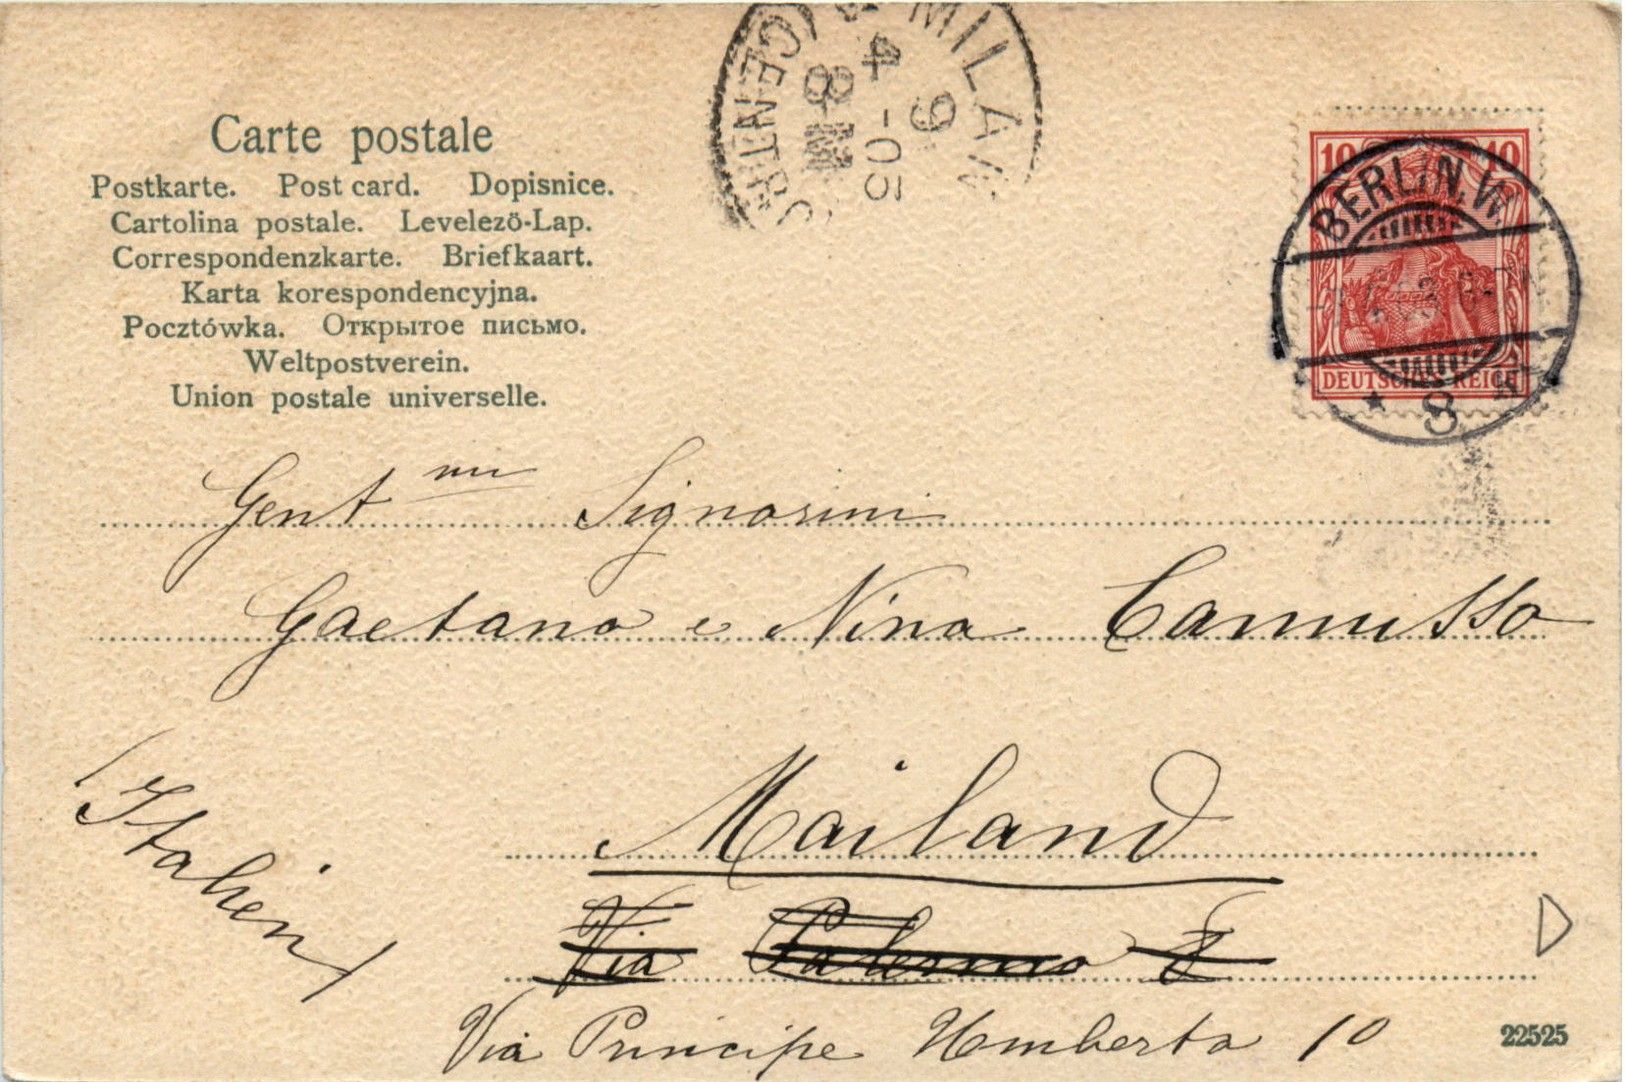 Carte postale
Postkarte. Post card. Dopisnice.
Cartolina postale. Levelező-Lap.
Correspondenzkarte. Briefkaart.
Karta korespondencyjna.
Pocztówka. Открытое письмо.
Weltpostverein.
Union postale universelle.
MILAN
9
4 -05
8-M
CENTR
10 10
DEUTSCHES REICH
BERLIN. W.
* 8
Gent mi Signorini
Gaetano e Nina Camusso
Mailand
(Italien)
Via Palermo
Via Principe Homberto 10
D
22525